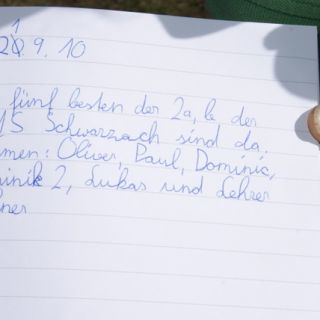 21.9.10
fünf besten der 2a, b der
Schwarzach sind da.
men: Oliver, Paul, Dominic,
inik 2, Lukas und Lehrer
ner